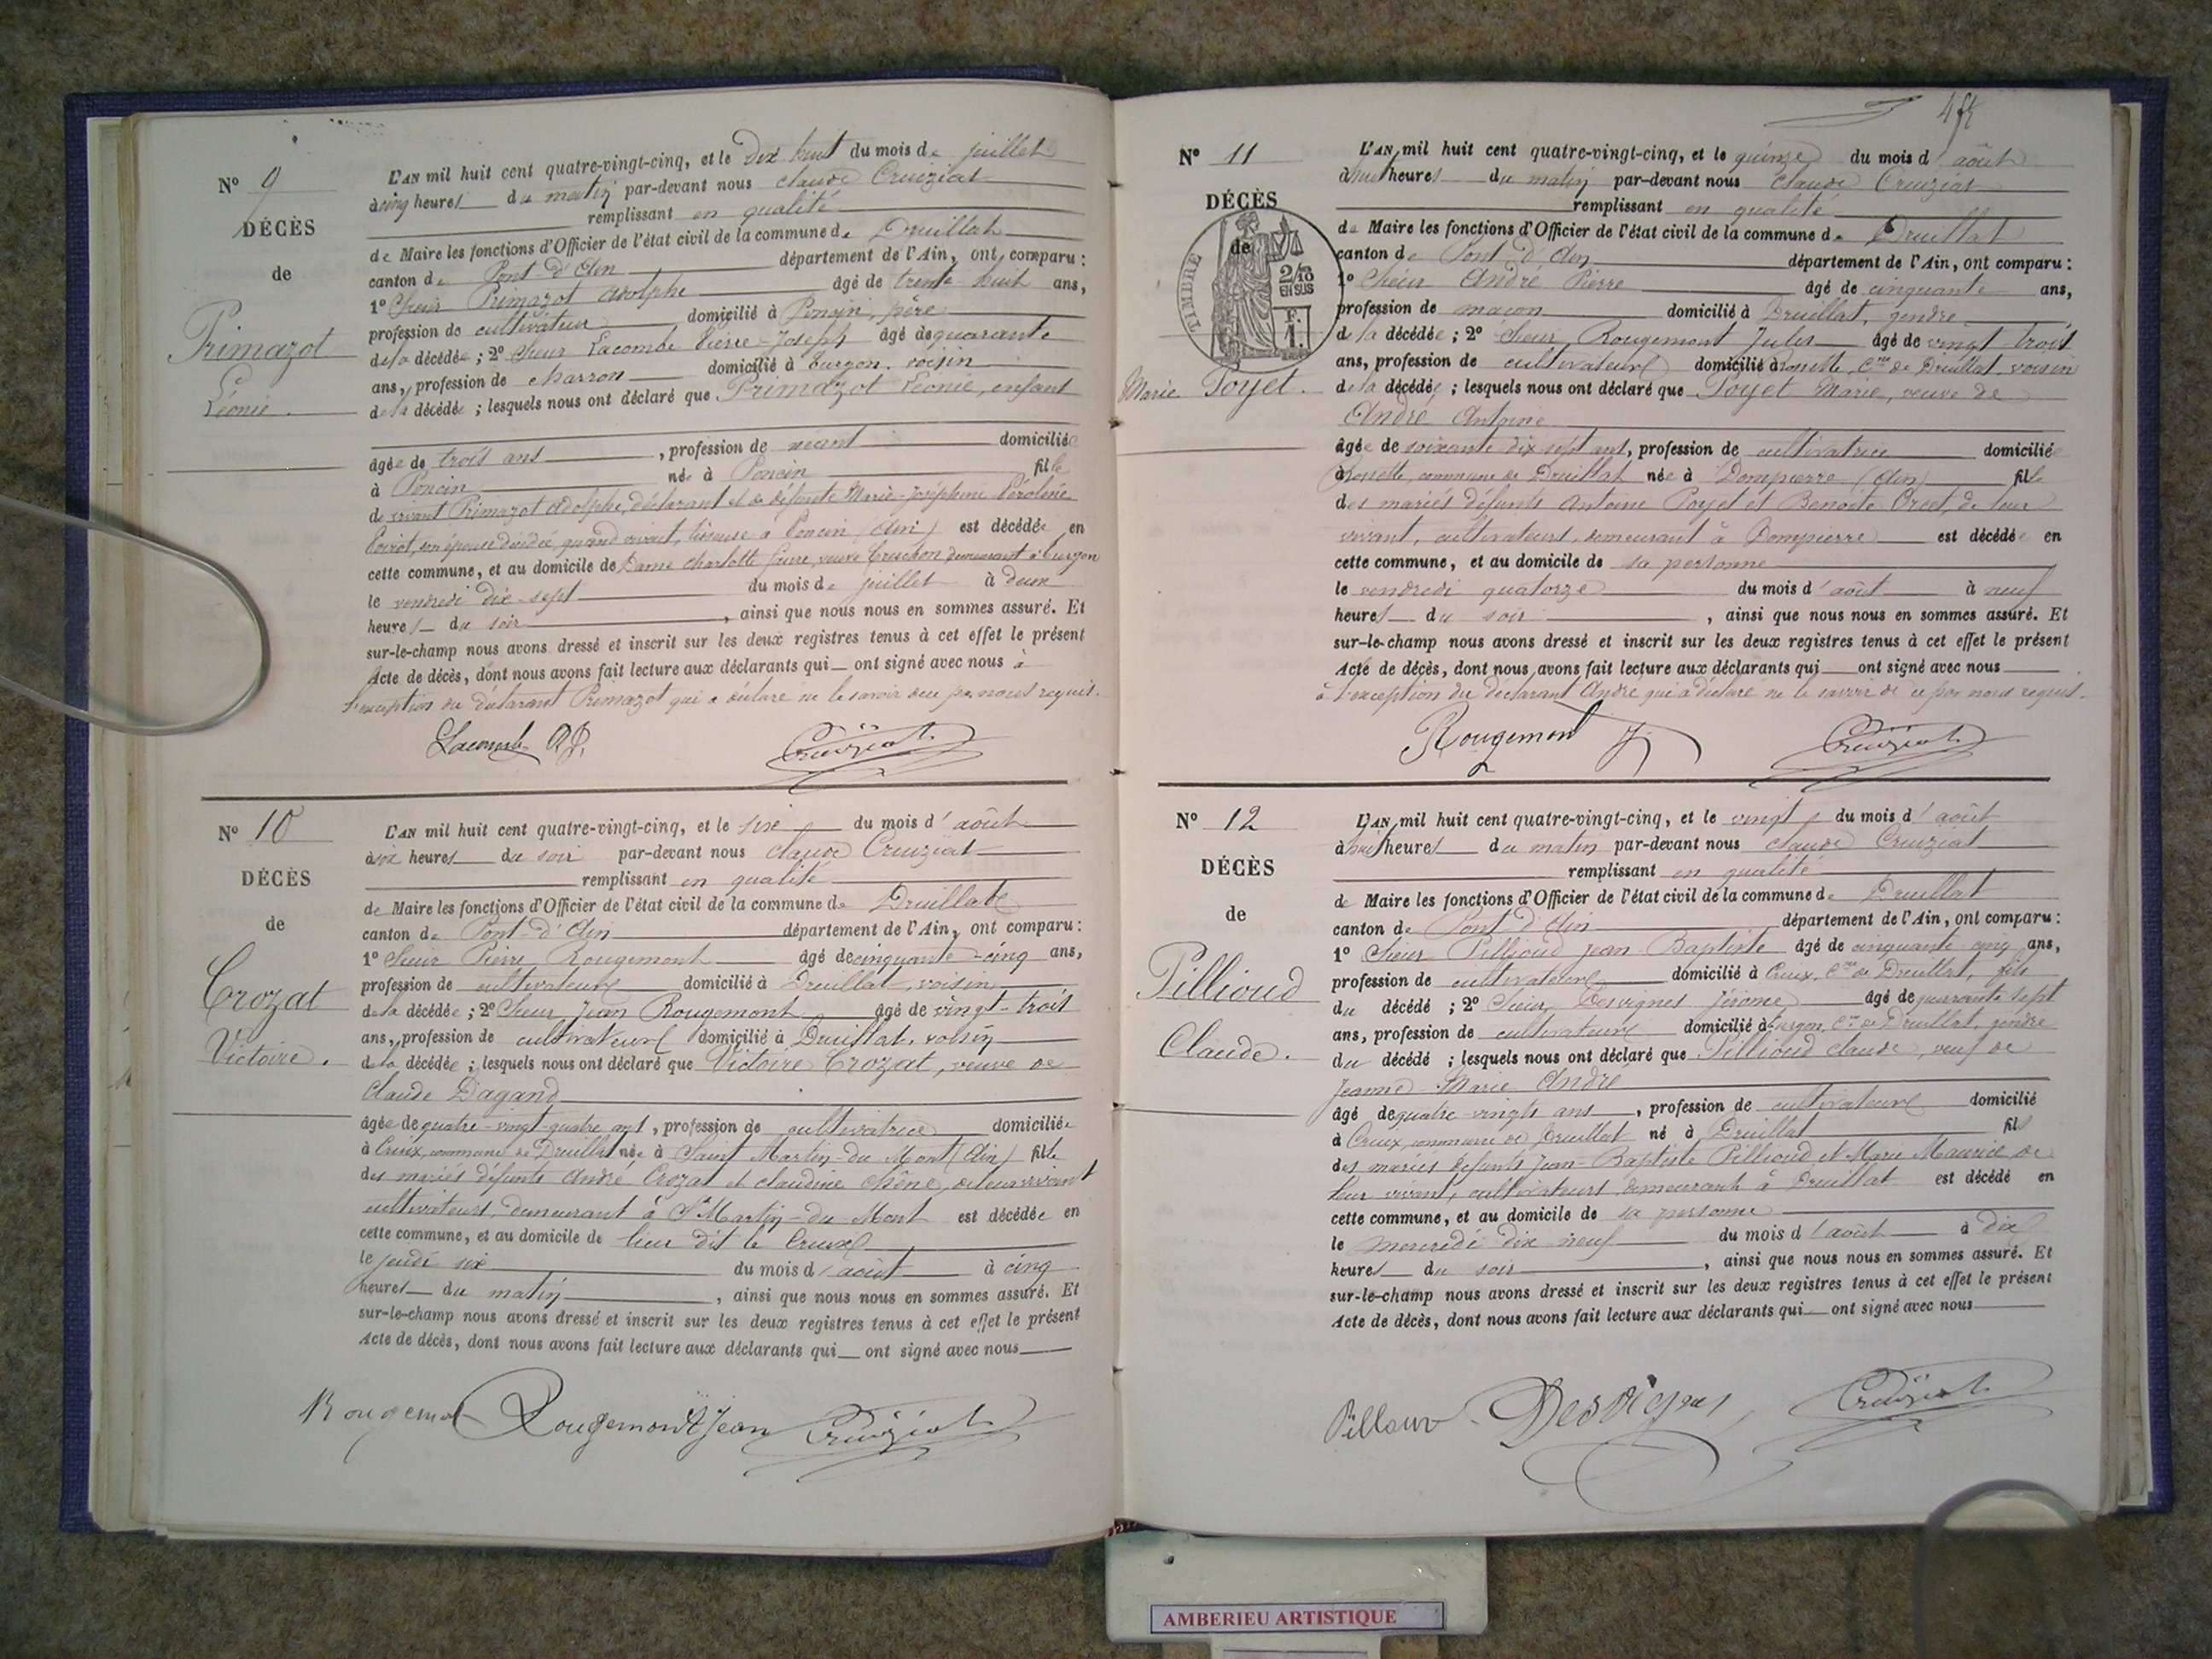 Nº 9
DÉCÈS
de
Primazot
Léonie
L'AN mil huit cent quatre-vingt-cinq, et le Dix huit du mois de juillet
à cinq heures du matin par-devant nous Claude Cruiziat
remplissant en qualité
de Maire les fonctions d'Officier de l'état civil de la commune de Druillat
canton de Pont d'Ain département de l'Ain, ont comparu :
1º Sieur Primazot Adolphe âgé de trente huit ans,
profession de cultivateur domicilié à Poncin, père
de la décédée ; 2º Sieur Lacombe Pierre-Joseph âgé de quarante
ans, profession de charron domicilié à Turgon, voisin
de la décédée ; lesquels nous ont déclaré que Primazot Léonie, enfant
âgée de trois ans, profession de néant domiciliée
à Poncin née à Poncin fille
de vivant Primazot Adolphe, déclarant et de défunte Marie-Joséphine
son épouse décédée, quand vivait, à Poncin (Ain) est décédée en
cette commune, et au domicile de Dame Charlotte veuve Cruchon demeurant à Turgon
le vendredi dix-sept du mois de juillet à deux
heures du soir, ainsi que nous nous en sommes assuré. Et
sur-le-champ nous avons dressé et inscrit sur les deux registres tenus à cet effet le présent
Acte de décès, dont nous avons fait lecture aux déclarants qui ont signé avec nous à
l'exception du déclarant Primazot qui a déclaré ne le savoir de ce par nous requis.
Lacombe Cruiziat
Nº 10
DÉCÈS
de
Crozat
Victoire.
L'AN mil huit cent quatre-vingt-cinq, et le six du mois d'août
à six heures du soir par-devant nous Claude Cruiziat
remplissant en qualité
de Maire les fonctions d'Officier de l'état civil de la commune de Druillat
canton de Pont-d'Ain département de l'Ain, ont comparu :
1º Sieur Pierre Rougemont âgé de cinquante-cinq ans,
profession de cultivateur domicilié à Druillat, voisin
de la décédée ; 2º Sieur Jean Rougemont âgé de vingt-trois
ans, profession de cultivateur domicilié à Druillat, voisin
de la décédée ; lesquels nous ont déclaré que Victoire Crozat, veuve de
Claude Dagand
âgée de quatre-vingt-quatre ans, profession de cultivatrice domiciliée
à Creux, commune de Druillat née à Saint Martin-du Mont (Ain) fille
des mariés défunts André Crozat et Claudine Chêne, de leur vivant
cultivateurs, demeurant à St Martin-du Mont est décédée en
cette commune, et au domicile de lieu dit le Creux
le jeudi six du mois d'août à cinq
heures du matin, ainsi que nous nous en sommes assuré. Et
sur-le-champ nous avons dressé et inscrit sur les deux registres tenus à cet effet le présent
Acte de décès, dont nous avons fait lecture aux déclarants qui ont signé avec nous
Rougemont Rougemont Jean Cruiziat
Nº 11
DÉCÈS
de
TIMBRE
2/10
EN SUS
F.
1.
Marie Poyet.
L'AN mil huit cent quatre-vingt-cinq, et le quinze du mois d'août
à heures du matin par-devant nous Claude Cruiziat
remplissant en qualité
de Maire les fonctions d'Officier de l'état civil de la commune de Druillat
canton de Pont d'Ain département de l'Ain, ont comparu :
1º Sieur André Pierre âgé de cinquante ans,
profession de maçon domicilié à Druillat, gendre
de la décédée ; 2º Sieur Rougemont Jules âgé de vingt-trois
ans, profession de cultivateur domicilié à Rossette, Cne de Druillat voisin
de la décédée ; lesquels nous ont déclaré que Poyet Marie, veuve de
André Antoine
âgée de soixante dix sept ans, profession de cultivatrice domiciliée
à Rossette, commune de Druillat née à Dompierre (Ain) fille
des mariés défunts Antoine Poyet et Benoite Orset, de leur
vivant, cultivateurs, demeurant à Dompierre est décédée en
cette commune, et au domicile de sa personne
le vendredi quatorze du mois d'août à neuf
heures du soir, ainsi que nous nous en sommes assuré. Et
sur-le-champ nous avons dressé et inscrit sur les deux registres tenus à cet effet le présent
Acte de décès, dont nous avons fait lecture aux déclarants qui ont signé avec nous
à l'exception du déclarant André qui a déclaré ne le savoir de ce par nous requis.
Rougemont J Cruiziat
Nº 12
DÉCÈS
de
Pillioud
Claude.
L'AN mil huit cent quatre-vingt-cinq, et le vingt du mois d'août
à huit heures du matin par-devant nous Claude Cruiziat
remplissant en qualité
de Maire les fonctions d'Officier de l'état civil de la commune de Druillat
canton de Pont d'Ain département de l'Ain, ont comparu :
1º Sieur Pillioud Jean-Baptiste âgé de cinquante cinq ans,
profession de cultivateur domicilié à Creux, Cne de Druillat, fils
du décédé ; 2º Sieur Desvignes Jérome âgé de quarante sept
ans, profession de cultivateur domicilié à Turgon, Cne de Druillat, gendre
du décédé ; lesquels nous ont déclaré que Pillioud Claude, veuf de
Jeanne-Marie André
âgé de quatre vingts ans, profession de cultivateur domicilié
à Creux, commune de Druillat né à Druillat fils
des mariés défunts Jean-Baptiste Pillioud et Marie Maurice de
leur vivant, cultivateurs demeurant à Druillat est décédé en
cette commune, et au domicile de sa personne
le mercredi dix neuf du mois d'août à dix
heures du soir, ainsi que nous nous en sommes assuré. Et
sur-le-champ nous avons dressé et inscrit sur les deux registres tenus à cet effet le présent
Acte de décès, dont nous avons fait lecture aux déclarants qui ont signé avec nous
Pillioud Desvignes Cruiziat
AMBERIEU ARTISTIQUE